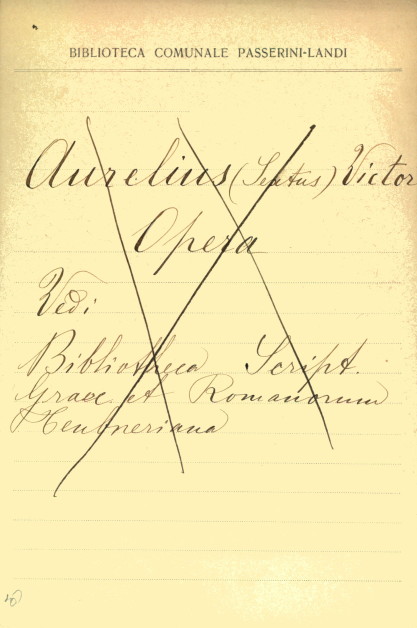 BIBLIOTECA COMUNALE PASSERINI-LANDI
Aurelius (Sextus) Victor
Opera
Vedi
Bibliotheca Script.
Graec. et Romanorum
Teubneriana